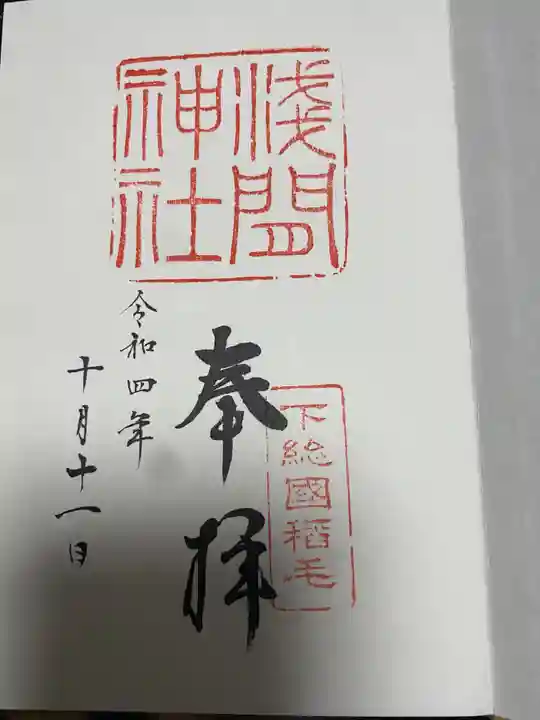 淺間
神社
下総國稻毛
奉拝
令和四年
十月十一日